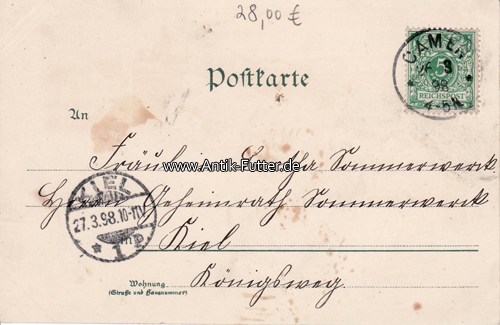 28,00 €
CAMEN
3
98
4-5N
5
REICHSPOST
Postkarte
An
Fräulein
www.Antik-Futter.de
Sommerwerck
Herrn Geheimrath Sommerwerck
KIEL
27.3.98.10-11V
* 1 P.
in
Kiel
Wohnung
(Straße und Hausnummer)
Königsweg.